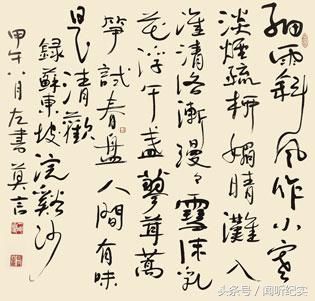 細雨斜風作小寒
淡煙疏柳媚晴灘入
淮清洛漸漫々雪沫乳
花浮午盞蓼茸蒿
筍試春盤人間有味
是清歡
錄蘇東坡浣谿沙
甲午八月左書莫言
头条号 / 闻听纪实